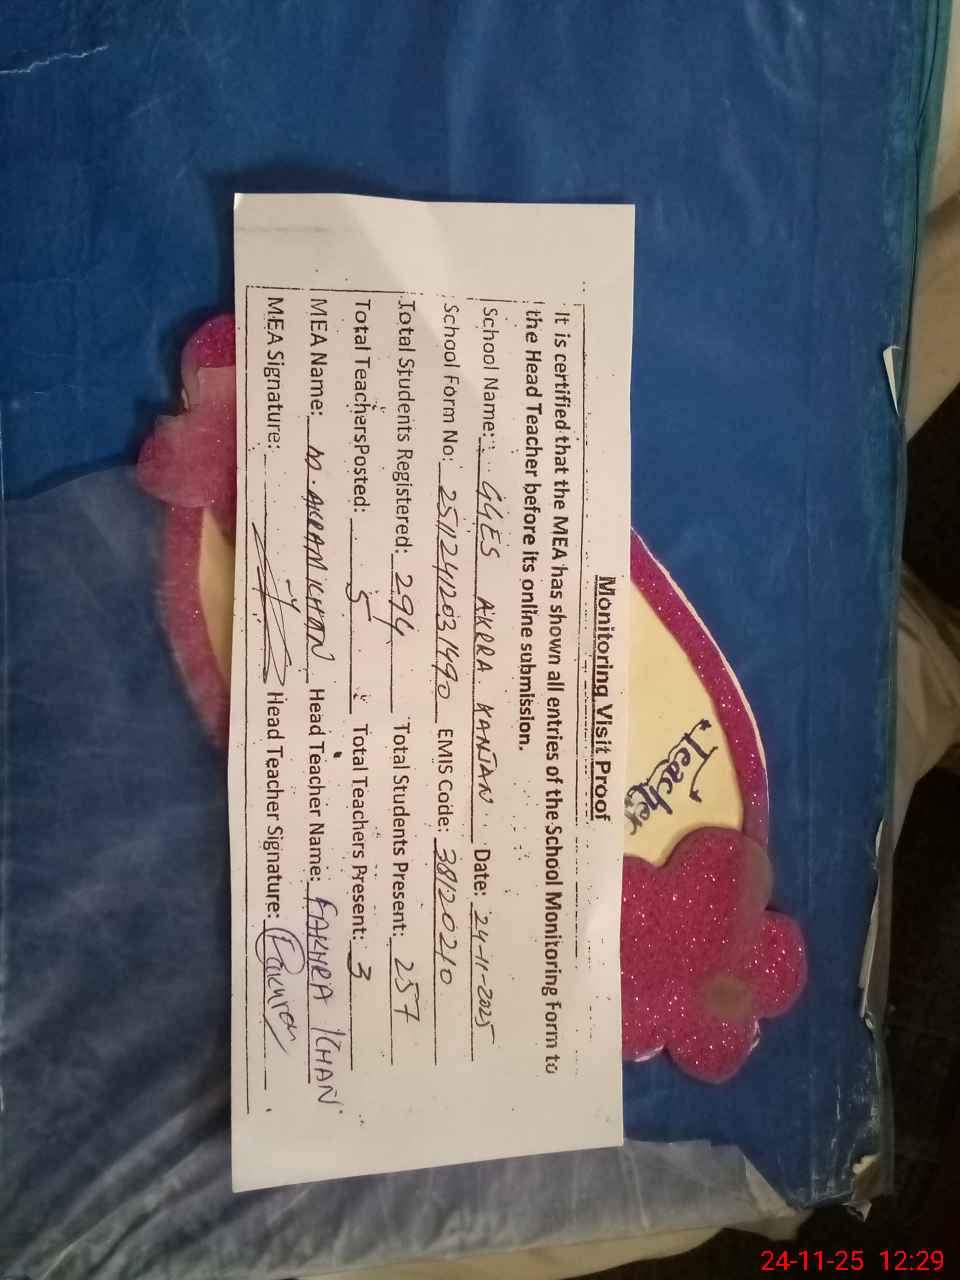 Monitoring Visit Proof
It is certified that the MEA has shown all entries of the School Monitoring Form to
the Head Teacher before its online submission.
School Name: GGES AKRA KANJAN Date: 24-11-2025
School Form No: 25112412031490 EMIS Code: 38120210
Total Students Registered: 294 Total Students Present: 257
Total TeachersPosted: 5 Total Teachers Present: 3
MEA Name: M. AKRAM KHAN Head Teacher Name: FAKHRA KHAN
MEA Signature: Head Teacher Signature: Fakhra
Teacher
24-11-25 12:29